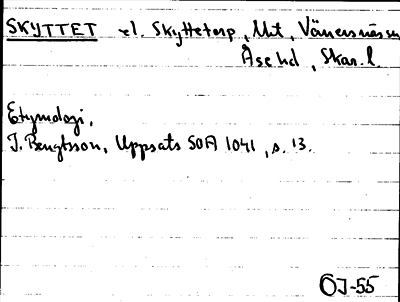 SKYTTET el. Skyttetorp, Mt, Vänersnäs sn
Åse hd, Skar. l.
Etymologi,
T. Bengtsson, Uppsats SOA 1041, s. 13.
ÖJ-55